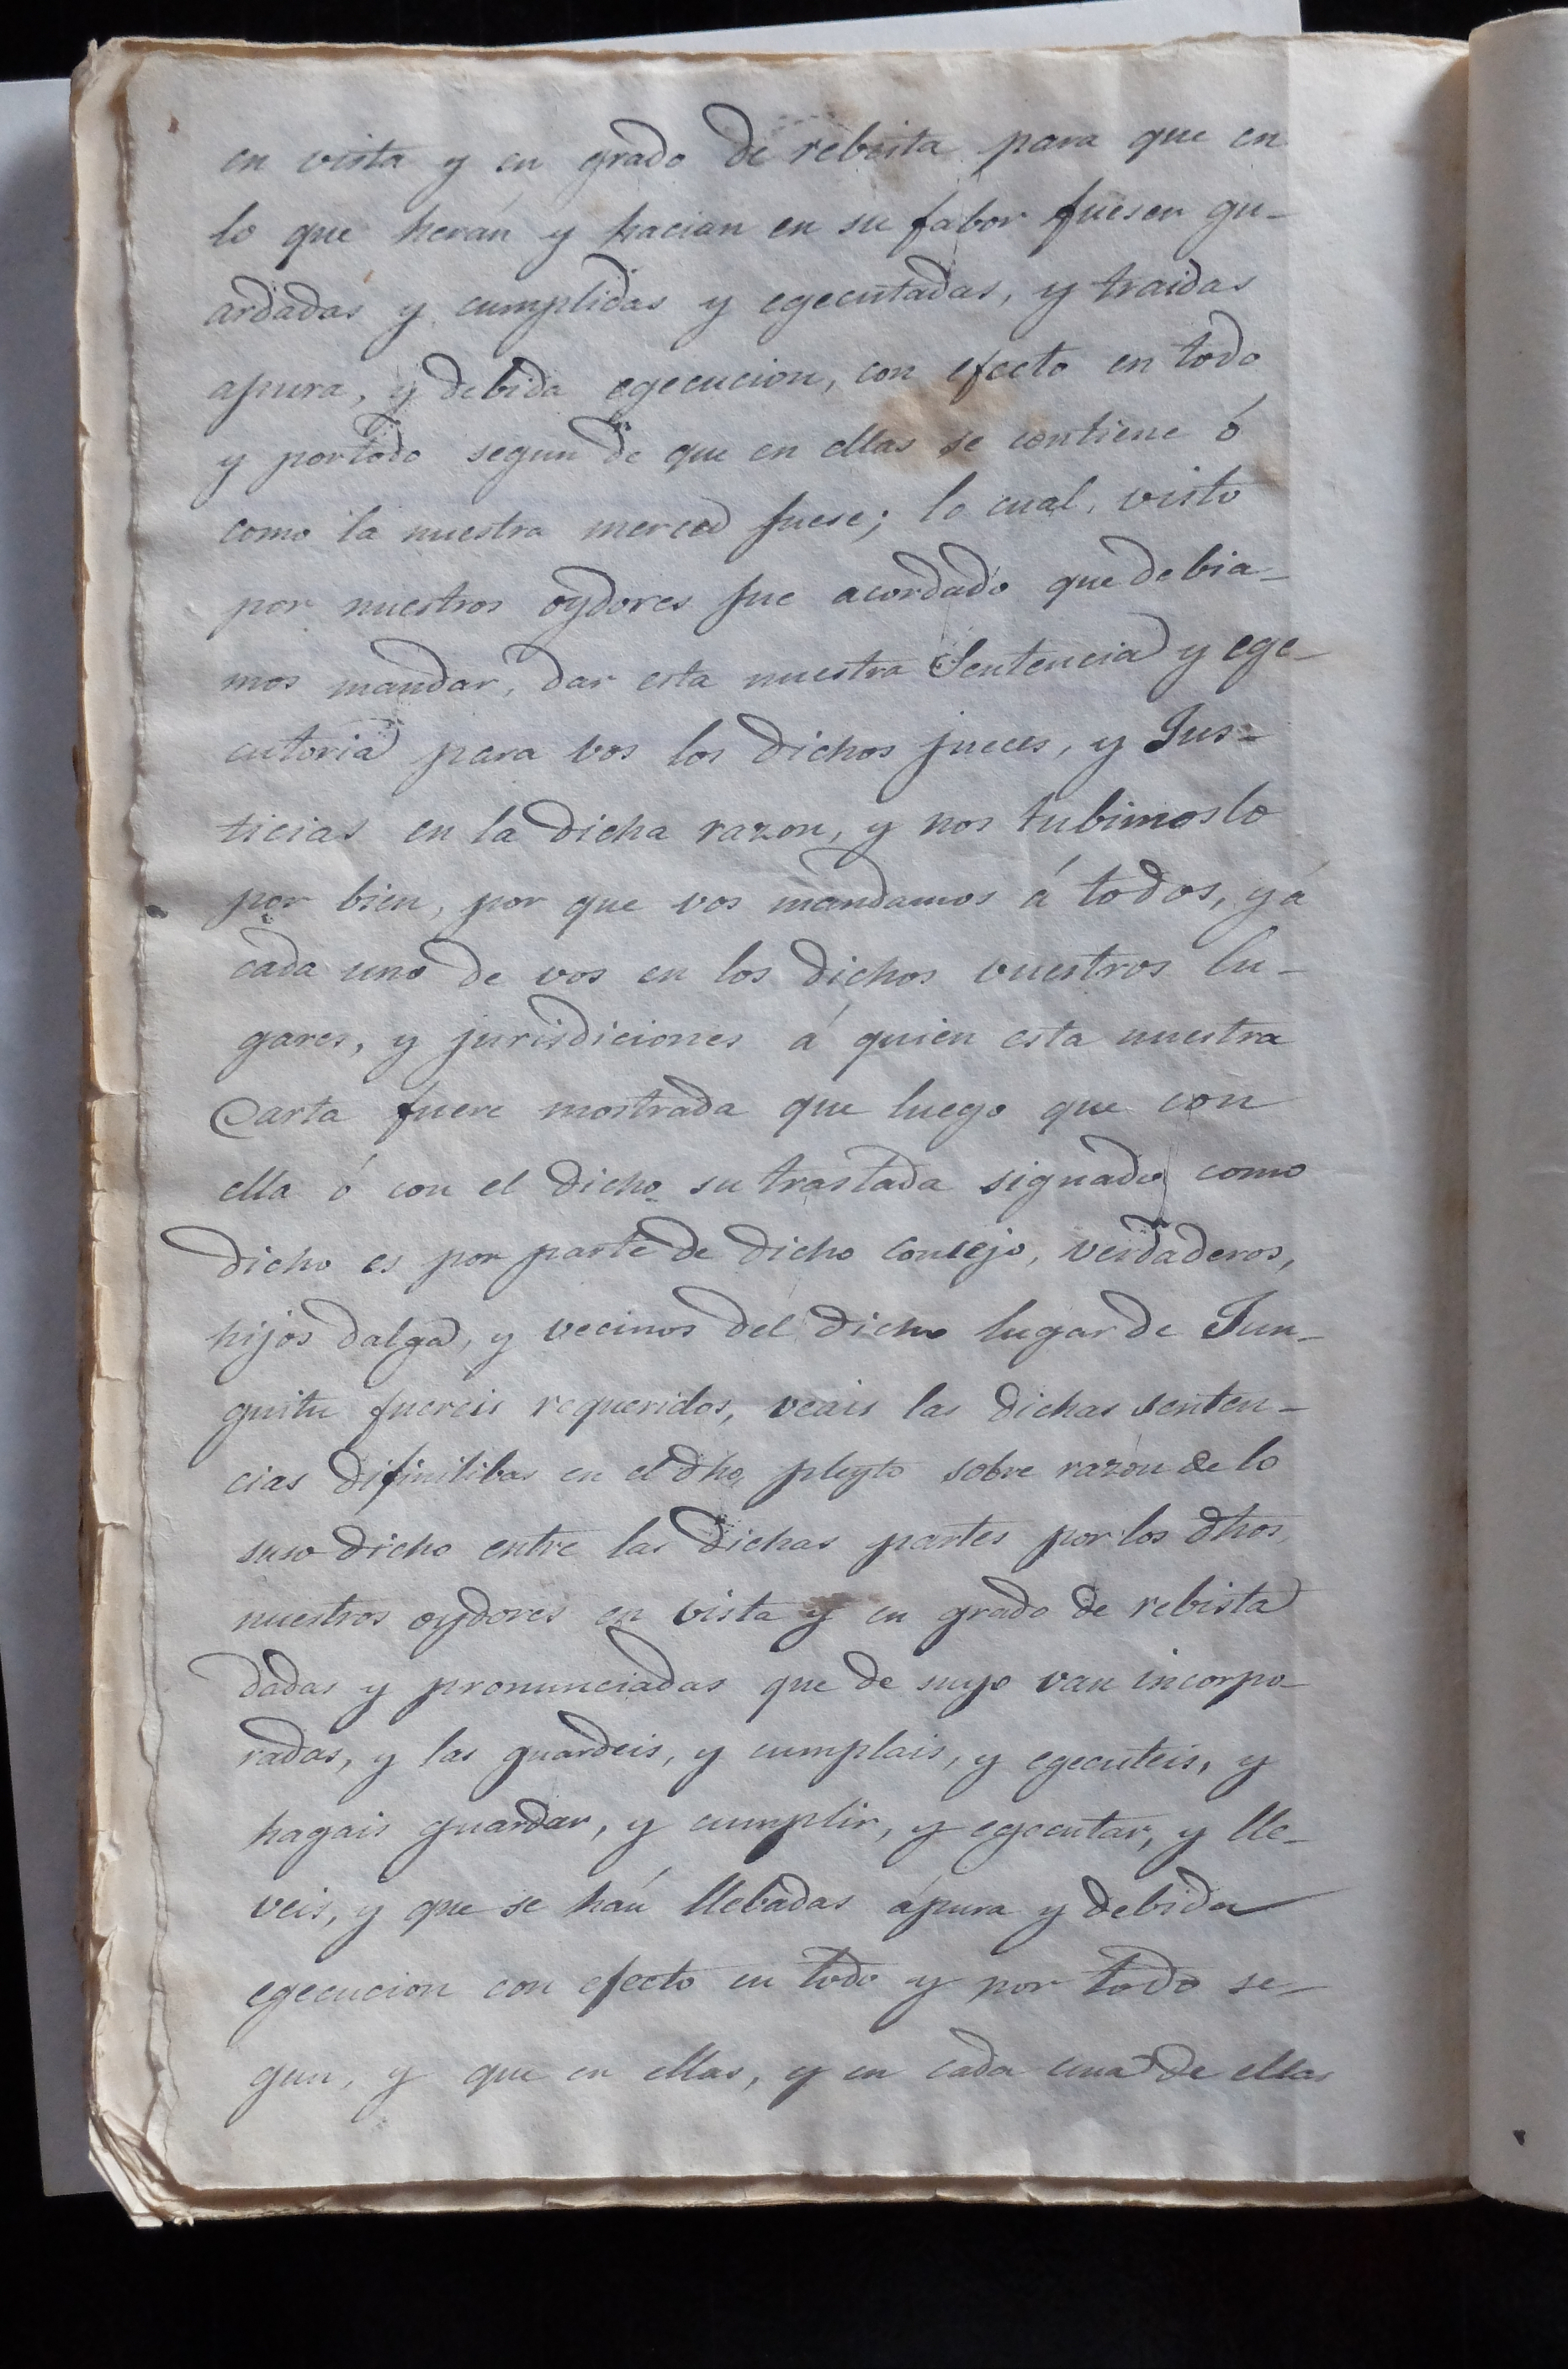 en vista y en grado de rebista para que en
lo que herán y hacian en su fabor fuesen gu-
ardadas y cumplidas y egecutadas, y traidas
apura, y debida egecucion, con efecto en todo
y portodo segun de que en ellas se contiene ó
como la nuestra merced fuese; lo cual, visto
por nuestros oydores fue acordado que debia-
mos mandar, dar esta nuestra Sentencia y ege-
cutoria para vos los dichos jueces, y Jus-
ticias en la dicha razon, y nos tubimoslo
por bien, por que vos mandamos á todos, y á
cada uno de vos en los dichos vuestros lu-
gares, y jurisdiciones á quien esta nuestra
Carta fuere mostrada que luego que con
ella ó con el dicho su traslada signado como
dicho es por parte de dicho consejo, verdaderos,
hijos dalga, y vecinos del dicho lugar de Jun-
guitu fuereis requeridos, veais las dichas senten-
cias difinitibas en el dho, pleyto sobre razon de lo
suso dicho entre las dichas partes por los dhos,
nuestros oydores en vista y en grado de rebista
dadas y pronunciadas que de suyo van incorpo-
radas, y las guardeis, y cumplais, y egecuteis, y
hagais guardar, y cumplir, y egecutar, y lle-
veis, y que se hán llebadas ápura y debida
egecucion con efecto en todo y por todo se-
gun, y que en ellas, y en cada una de ellas